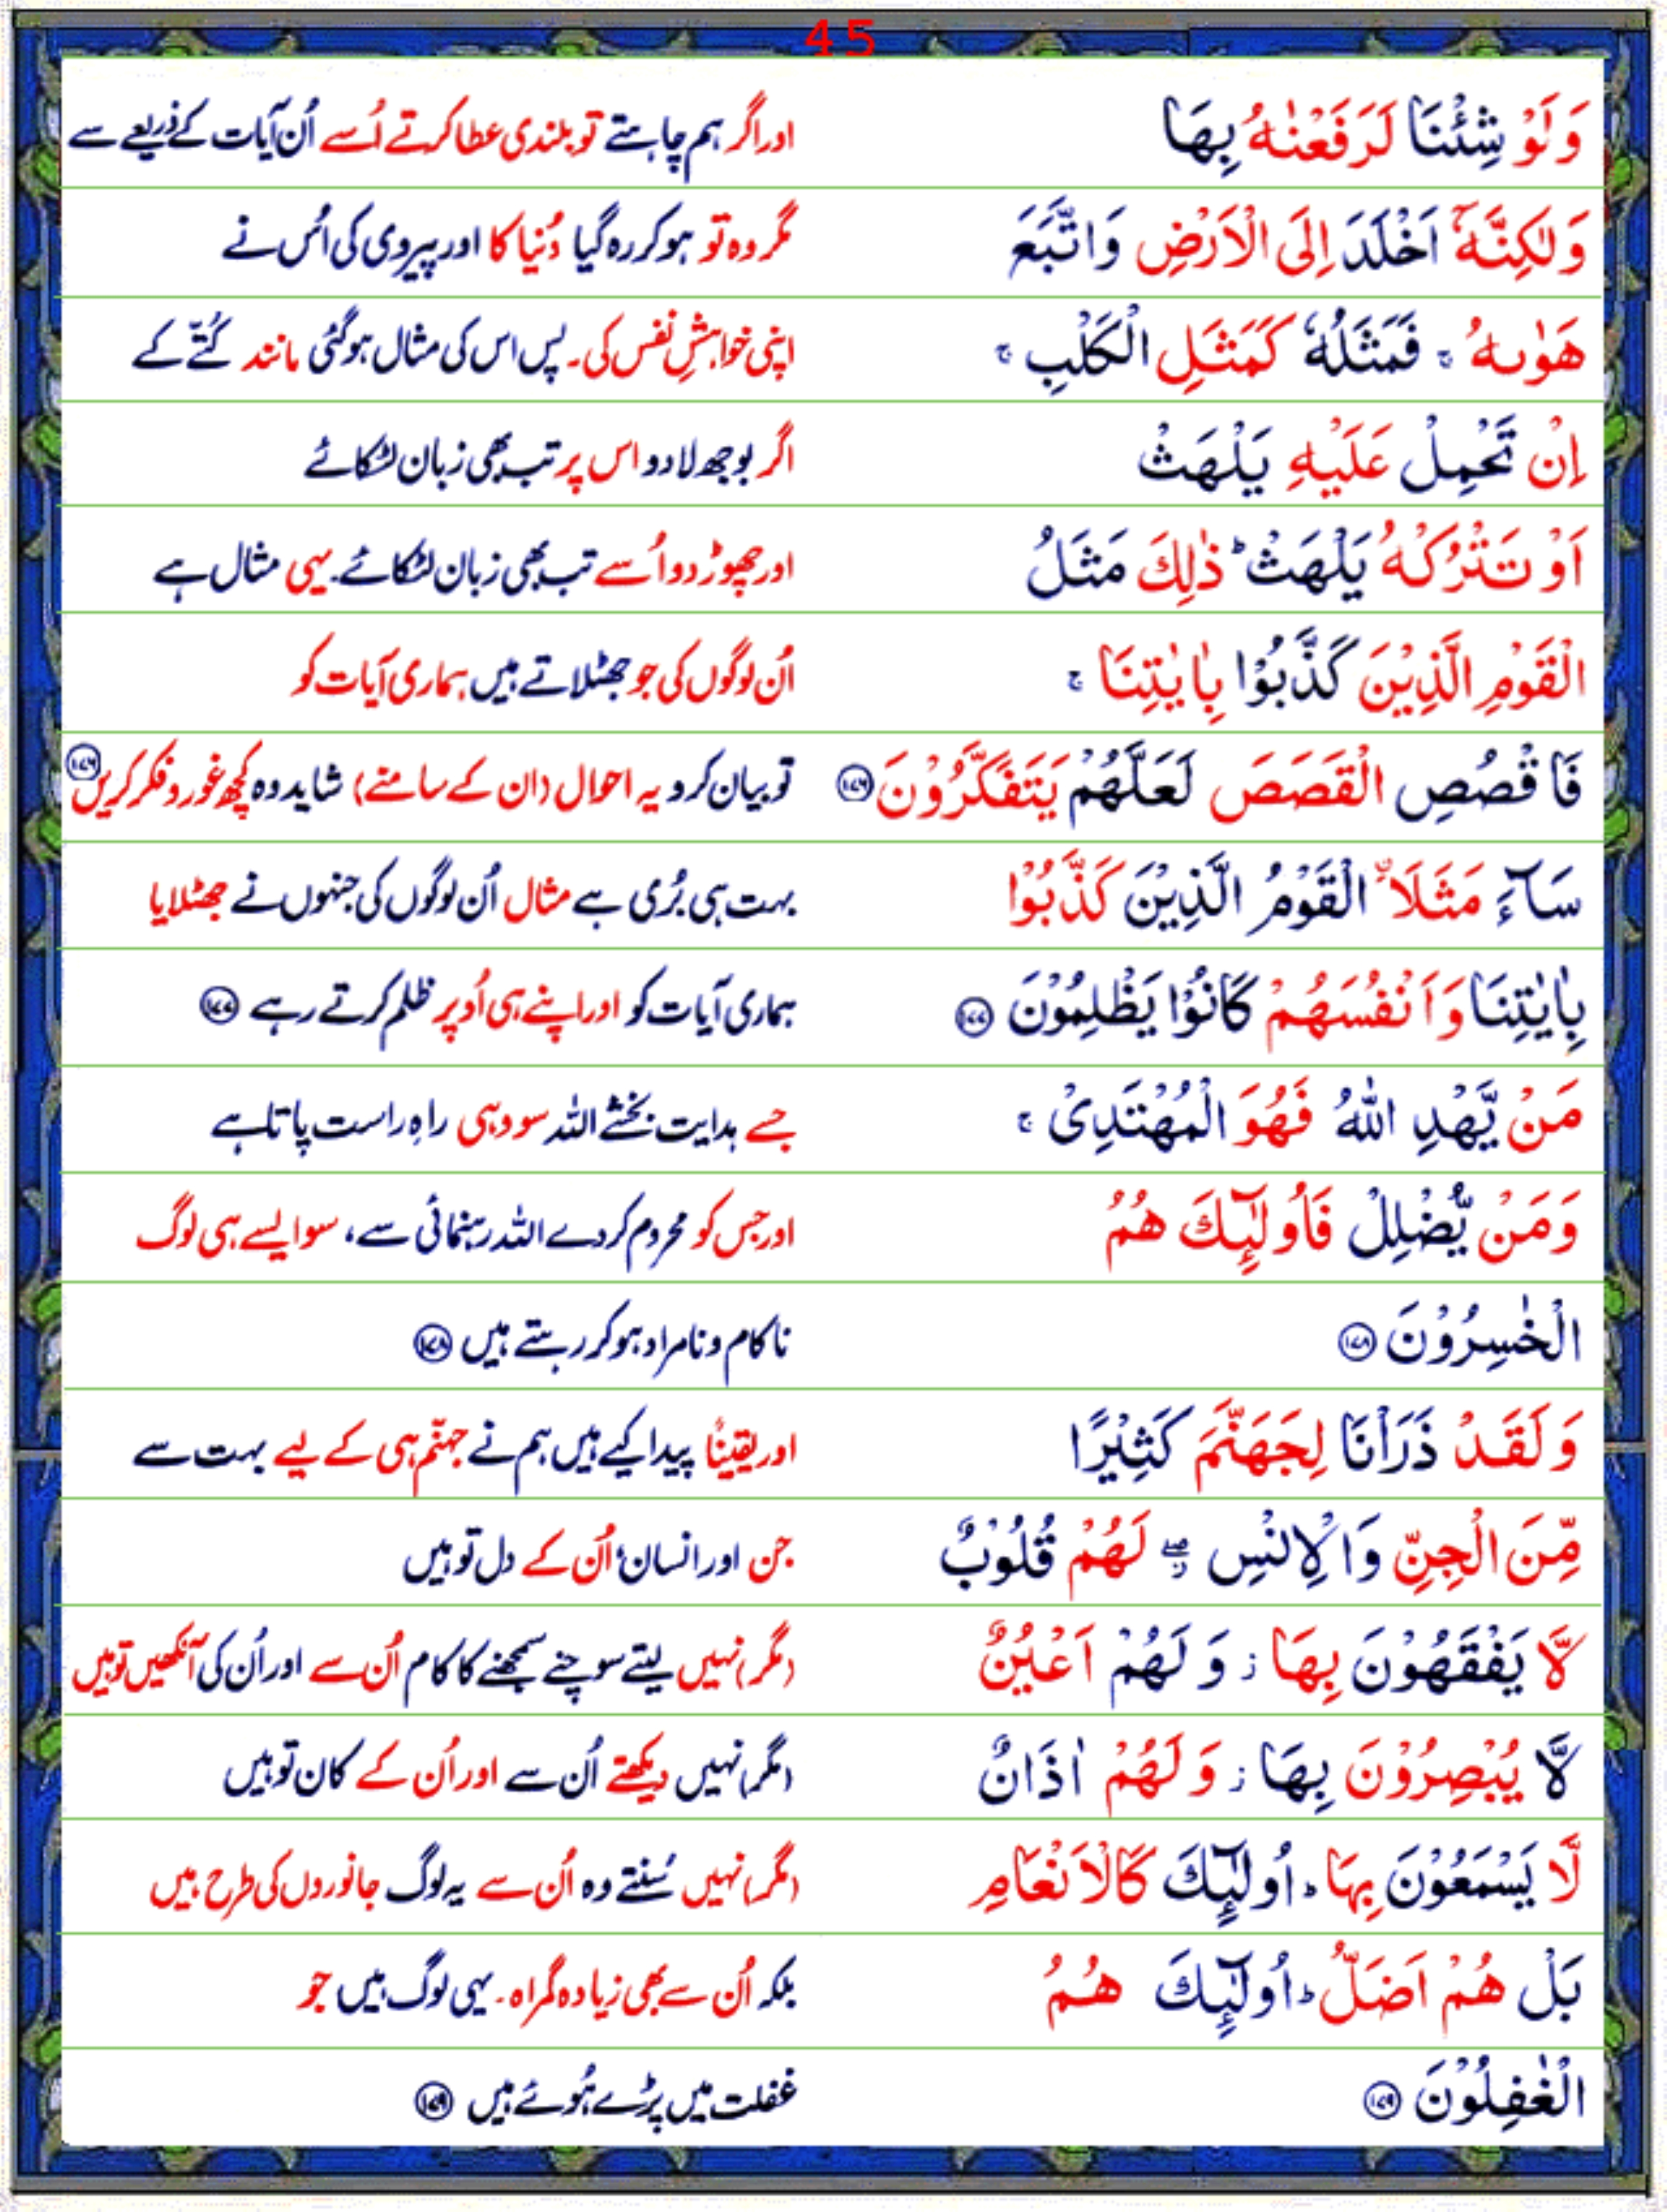 45
وَلَوْ شِئْنَا لَرَفَعْنٰهُ بِهَا اور اگر ہم چاہتے تو بلندی عطا کرتے اُسے اُن آیات کے ذریعے سے
وَلٰكِنَّهٗۤ اَخْلَدَ اِلَى الْاَرْضِ وَاتَّبَعَ مگر وہ تو ہو کر رہ گیا دُنیا کا اور پیروی کی اُس نے
هَوٰىهُ ۚ فَمَثَلُهٗ كَمَثَلِ الْكَلْبِ ۚ اپنی خواہشِ نفس کی۔ پس اس کی مثال ہو گئی مانند کُتّے کے
اِنْ تَحْمِلْ عَلَيْهِ يَلْهَثْ اگر بوجھ لادو اس پر تب بھی زبان لٹکائے
اَوْ تَتْرُكْهُ يَلْهَثْ ؕ ذٰلِكَ مَثَلُ اور چھوڑ دو اُسے تب بھی زبان لٹکائے۔ یہی مثال ہے
الْقَوْمِ الَّذِيْنَ كَذَّبُوْا بِاٰيٰتِنَا ۚ اُن لوگوں کی جو جھٹلاتے ہیں ہماری آیات کو
فَاقْصُصِ الْقَصَصَ لَعَلَّهُمْ يَتَفَكَّرُوْنَ ۱۷۶ تو بیان کرو یہ احوال (ان کے سامنے) شاید وہ کچھ غور و فکر کریں ۱۷۶
سَآءَ مَثَلَا ۨ الْقَوْمُ الَّذِيْنَ كَذَّبُوْا بہت ہی بُری ہے مثال اُن لوگوں کی جنہوں نے جھٹلایا
بِاٰيٰتِنَا وَاَنْفُسَهُمْ كَانُوْا يَظْلِمُوْنَ ۱۷۷ ہماری آیات کو اور اپنے ہی اُوپر ظلم کرتے رہے ۱۷۷
مَنْ يَّهْدِ اللّٰهُ فَهُوَ الْمُهْتَدِىْ ۚ جسے ہدایت بخشے اللہ سو وہی راہِ راست پاتا ہے
وَمَنْ يُّضْلِلْ فَاُولٰٓئِكَ هُمُ اور جس کو محروم کر دے اللہ رہنمائی سے، سو ایسے ہی لوگ
الْخٰسِرُوْنَ ۱۷۸ ناکام و نامراد ہو کر رہتے ہیں ۱۷۸
وَلَقَدْ ذَرَاْنَا لِجَهَنَّمَ كَثِيْرًا اور یقیناً پیدا کیے ہیں ہم نے جہنّم ہی کے لیے بہت سے
مِّنَ الْجِنِّ وَالْاِنْسِ ۖ لَهُمْ قُلُوْبٌ جن اور انسان، اُن کے دل تو ہیں
لَّا يَفْقَهُوْنَ بِهَا ز وَلَهُمْ اَعْيُنٌ (مگر) نہیں لیتے سوچنے سمجھنے کا کام اُن سے اور اُن کی آنکھیں تو ہیں
لَّا يُبْصِرُوْنَ بِهَا ز وَلَهُمْ اٰذَانٌ (مگر) نہیں دیکھتے اُن سے اور اُن کے کان تو ہیں
لَّا يَسْمَعُوْنَ بِهَا ؕ اُولٰٓئِكَ كَالْاَنْعَامِ (مگر) نہیں سُنتے وہ اُن سے یہ لوگ جانوروں کی طرح ہیں
بَلْ هُمْ اَضَلُّ ؕ اُولٰٓئِكَ هُمُ بلکہ اُن سے بھی زیادہ گمراہ۔ یہی لوگ ہیں جو
الْغٰفِلُوْنَ ۱۷۹ غفلت میں پڑے ہُوئے ہیں ۱۷۹